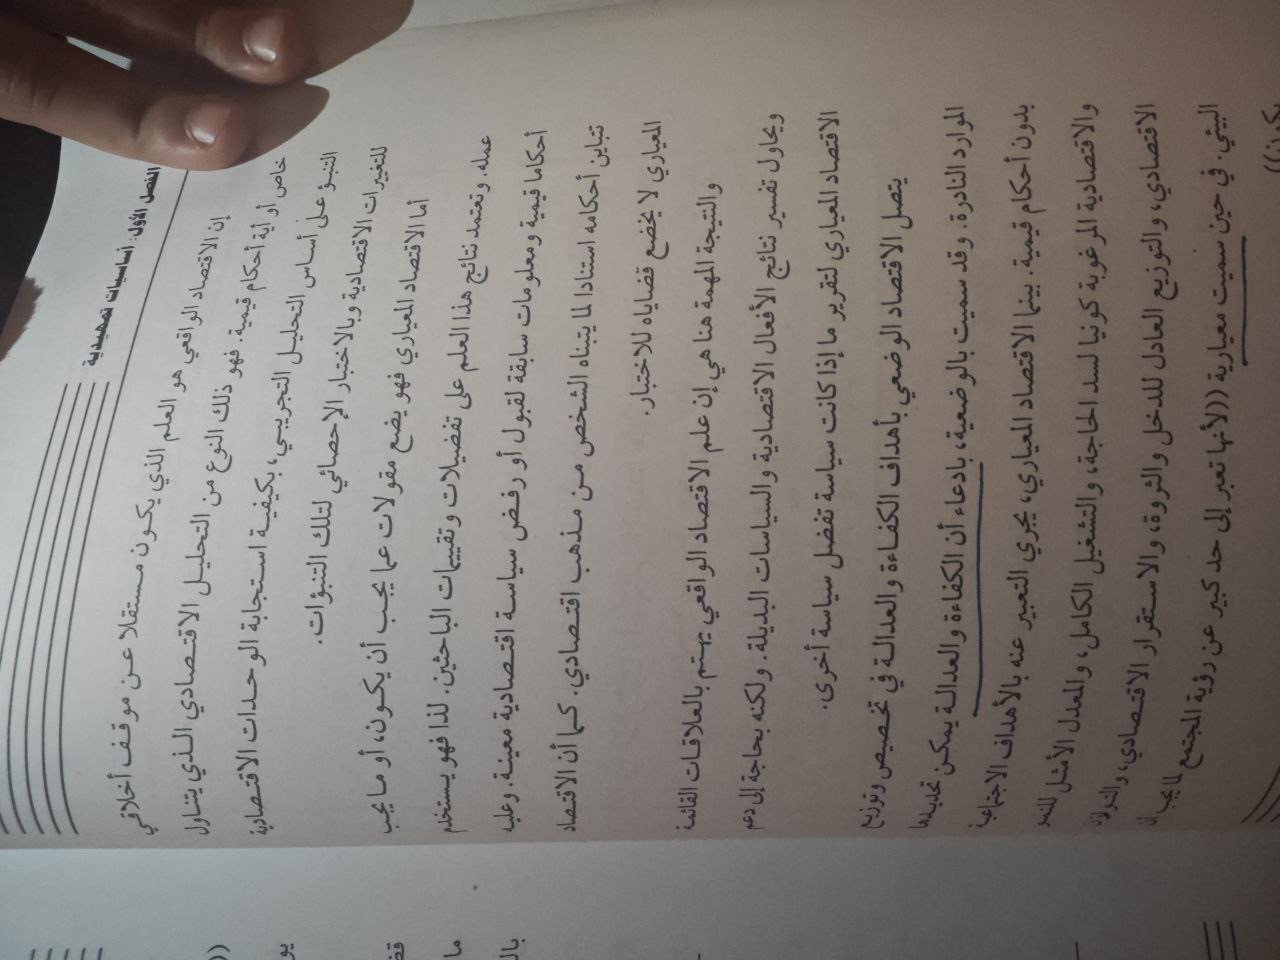 الفصل الأول: أساسيات تمهيدية
إن الاقتصاد الواقعي هو العلم الذي يكون مستقلا عن موقف أخلاقي
خاص أو أية أحكام قيمية. فهو ذلك النوع من التحليل الاقتصادي الذي يتناول
التنبؤ على أساس التحليل التجريبي، بكيفية استجابة الوحدات الاقتصادية
للتغيرات الاقتصادية وبالاختبار الإحصائي لتلك التنبؤات.
أما الاقتصاد المعياري فهو يضع مقولات عما يجب أن يكون، أو ما يجب
عمله. وتعتمد نتائج هذا العلم على تفضيلات وتقييمات الباحثين. لذا فهو يستخدم
أحكاما قيمية ومعلومات سابقة لقبول أو رفض سياسة اقتصادية معينة. وعليه
تتباين أحكامه استنادا لما يتبناه الشخص من مذهب اقتصادي. كما أن الاقتصاد
المعياري لا يخضع قضاياه للاختبار.
والنتيجة المهمة هنا هي إن علم الاقتصاد الواقعي يهتم بالعلاقات القائمة
ويحاول تفسير نتائج الأفعال الاقتصادية والسياسات البديلة. ولكنه بحاجة إلى دعم
الاقتصاد المعياري لتقرير ما إذا كانت سياسة تفضل سياسة أخرى.
يتصل الاقتصاد الوضعي بأهداف الكفاءة والعدالة في تخصيص وتوزيع
الموارد النادرة. وقد سميت بالوضعية، بادعاء أن الكفاءة والعدالة يمكن تحديدها
بدون أحكام قيمية. بينما الاقتصاد المعياري، يجري التعبير عنه بالأهداف الاجتماعية
والاقتصادية المرغوبة كونيا لسد الحاجة، والتشغيل الكامل، والمعدل الأمثل للنمو
الاقتصادي، والتوزيع العادل للدخل والثروة، والاستقرار الاقتصادي، والتوازن
البيئي. في حين سميت معيارية ((لأنها تعبر إلى حد كبير عن رؤية المجتمع لما يجب أن
يكون))